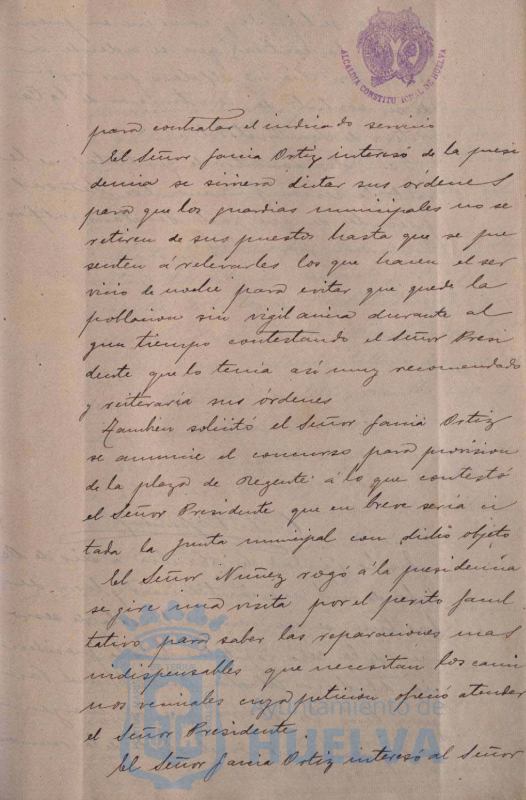 ALCALDIA CONSTITUCIONAL DE HUELVA
para contratar el indicado servicio
El Señor Garcia Ortiz interesó de la presi
dencia se sirviera dictar sus órdenes
para que los guardias municipales no se
retiren de sus puestos hasta que se pre
senten á relevarles los que hacen el ser
vicio de noche para evitar que quede la
poblacion sin vigilancia durante al
gun tiempo contestando el Señor Presi
dente que lo tenia asi muy recomendado
y reiteraria sus órdenes
Tambien solicitó el Señor Garcia Ortiz
se anuncie el concurso para provision
de la plaza de Regente á lo que contestó
el Señor Presidente que en breve seria ci
tada la Junta municipal con dicho objeto
El Señor Nuñez rogó á la presidencia
se gire una visita por el perito facul
tativo para saber las reparaciones mas
indispensables que necesitan los cami
nos vecinales cuya peticion ofreció atender
el Señor Presidente.
El Señor Garcia Ortiz interesó al Señor
Ayuntamiento de
HUELVA